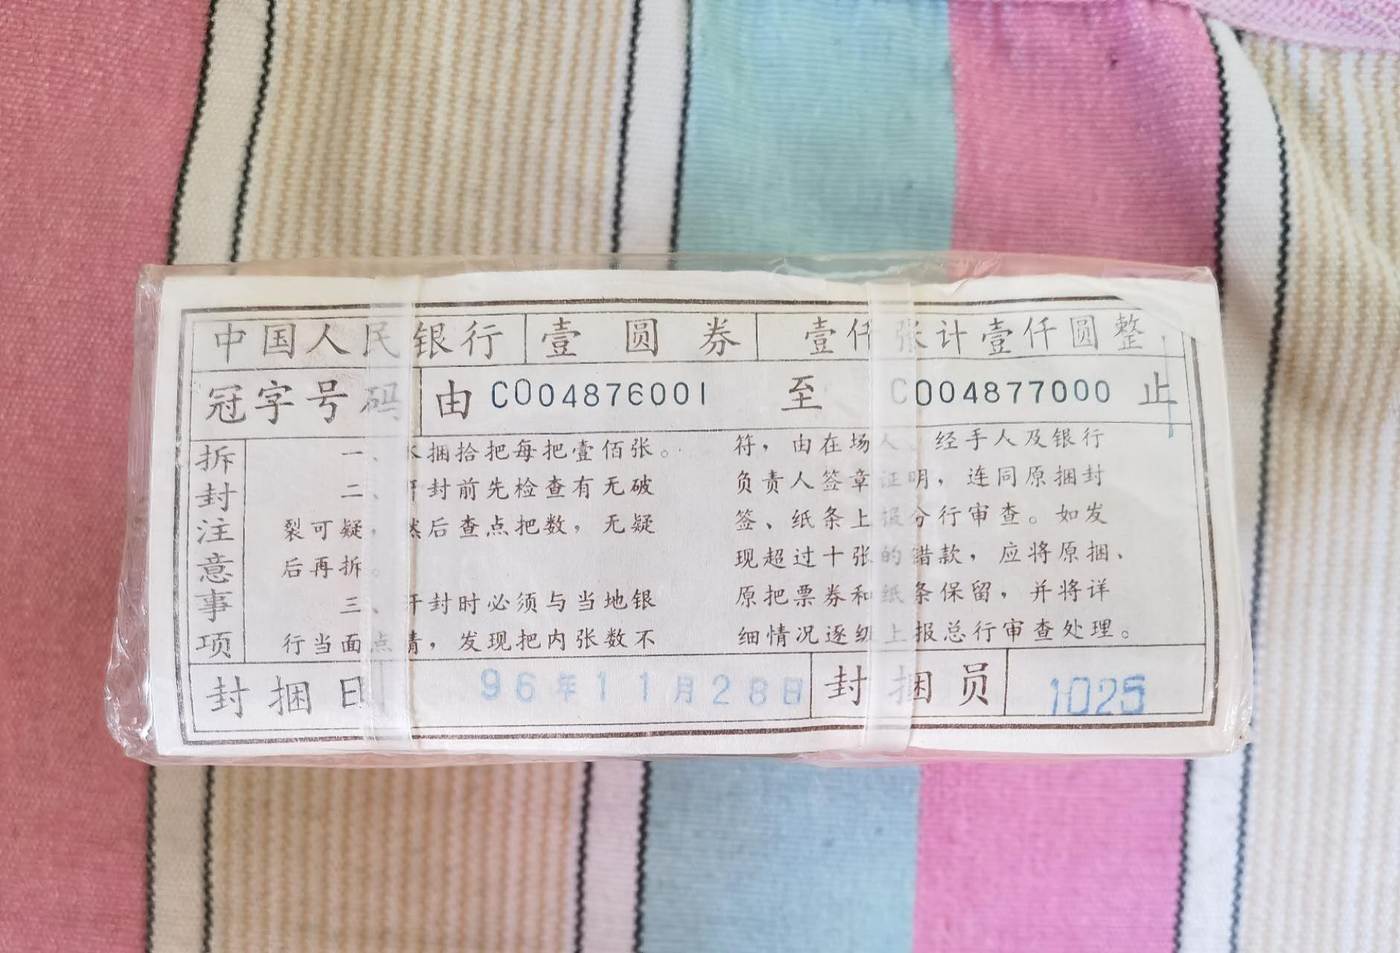 中国人民银行 壹圆券 壹仟张计壹仟圆整
冠字号码 由 C004876001 至 C004877000 止
拆封注意事项
一、本捆拾把每把壹佰张。
二、开封前先检查有无破
裂可疑，然后查点把数，无疑
后再拆。
三、开封时必须与当地银
行当面点清，发现把内张数不
符，由在场人、经手人及银行
负责人签章证明，连同原捆封
签、纸条上报分行审查。如发
现超过十张的错款，应将原捆、
原把票券和纸条保留，并将详
细情况逐级上报总行审查处理。
封捆日 96年11月28日 封捆员 1025